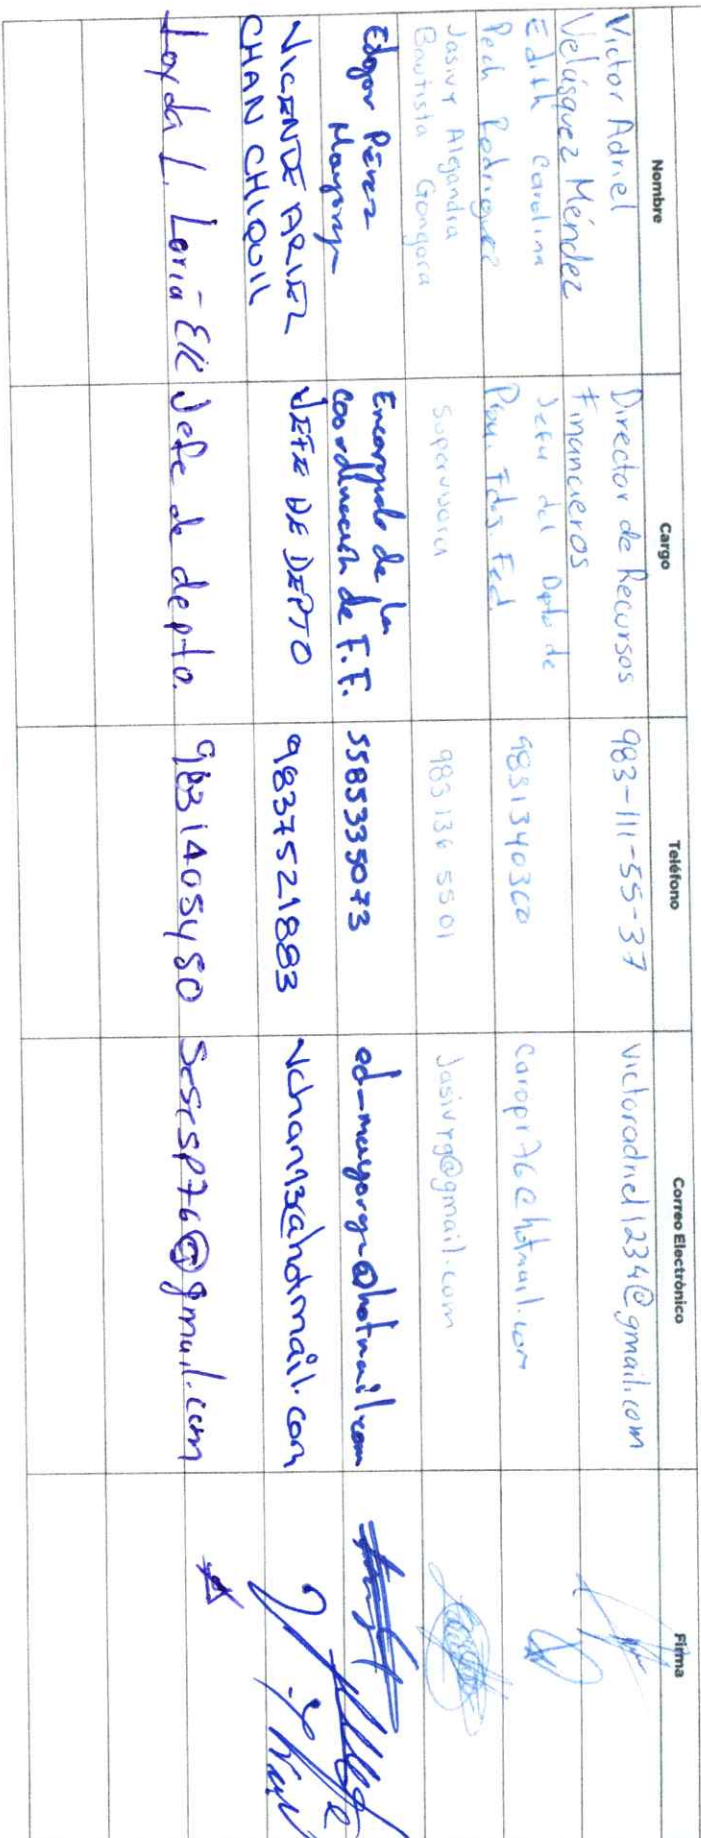 Nombre Cargo Teléfono Correo Electrónico Firma
Victor Adriel
Velásquez Méndez
Director de Recursos
Financieros
983-111-55-37
victoradriel1234@gmail.com
Edith Carolina
Pech Rodriguez
Jefa del Depto de
Fds. Fed
9831340360
caropr76@hotmail.com
Jasivy Alejandra
Bautista Gongora
Supervisora
983 136 5501
Jasivyg@gmail.com
Edgar Pérez
Mayorga
Encargado de la
Coordinación de F.F.
5585335073
ed-mayorga@hotmail.com
VICENTE ARIEL
CHAN CHIQUIL
JEFE DE DEPTO
9837521883
vchan13@hotmail.com
Loyda L. Loria
Jefe de depto.
9831405450
Sescsp76@gmail.com